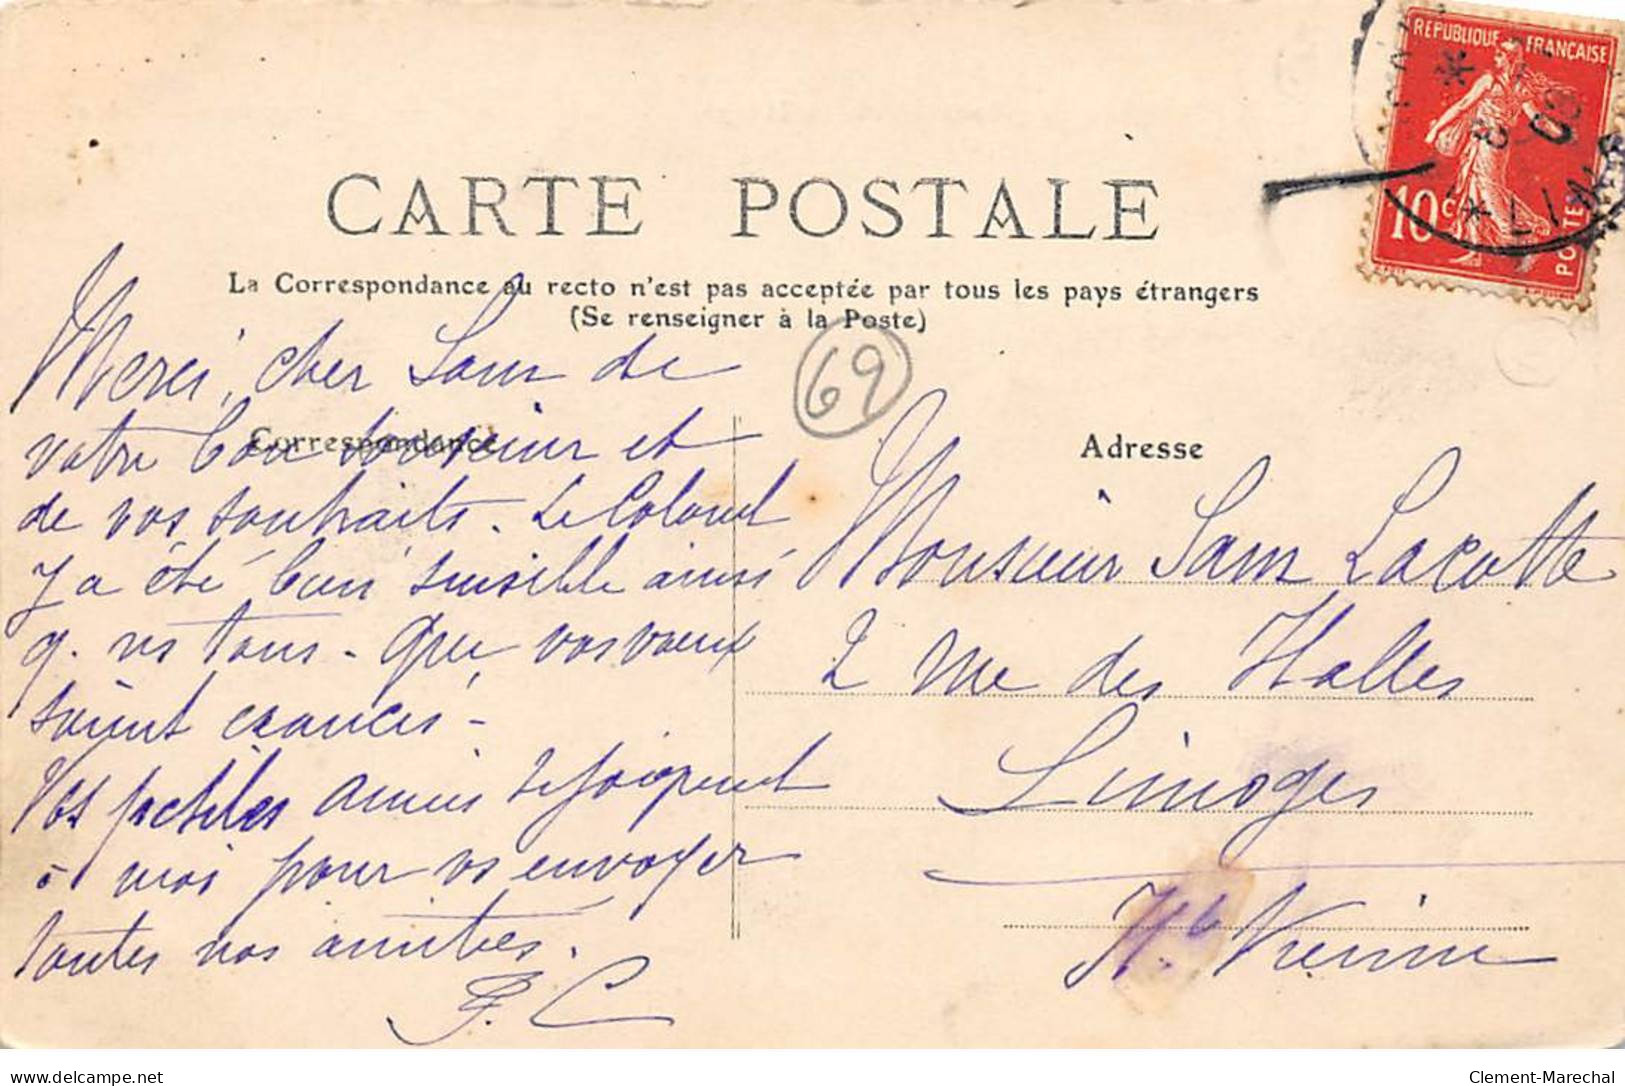 RÉPUBLIQUE FRANÇAISE
10c
POSTES
CARTE POSTALE
La Correspondance au recto n'est pas acceptée par tous les pays étrangers
(Se renseigner à la Poste)
69
Correspondance
Adresse
Merci, cher Sam de
votre bon souvenir et
de vos souhaits. Le Colonel
y a été bien sensible ainsi
q. ns tous - Que vos vœux
soient exaucés -
Vos petites amies se joignent
à moi pour vs envoyer
toutes nos amitiés.
F. C
Monsieur Sam Lacotte
2 rue des Halles
Limoges
Hte Vienne
Clement-Marechal
delcampe.net